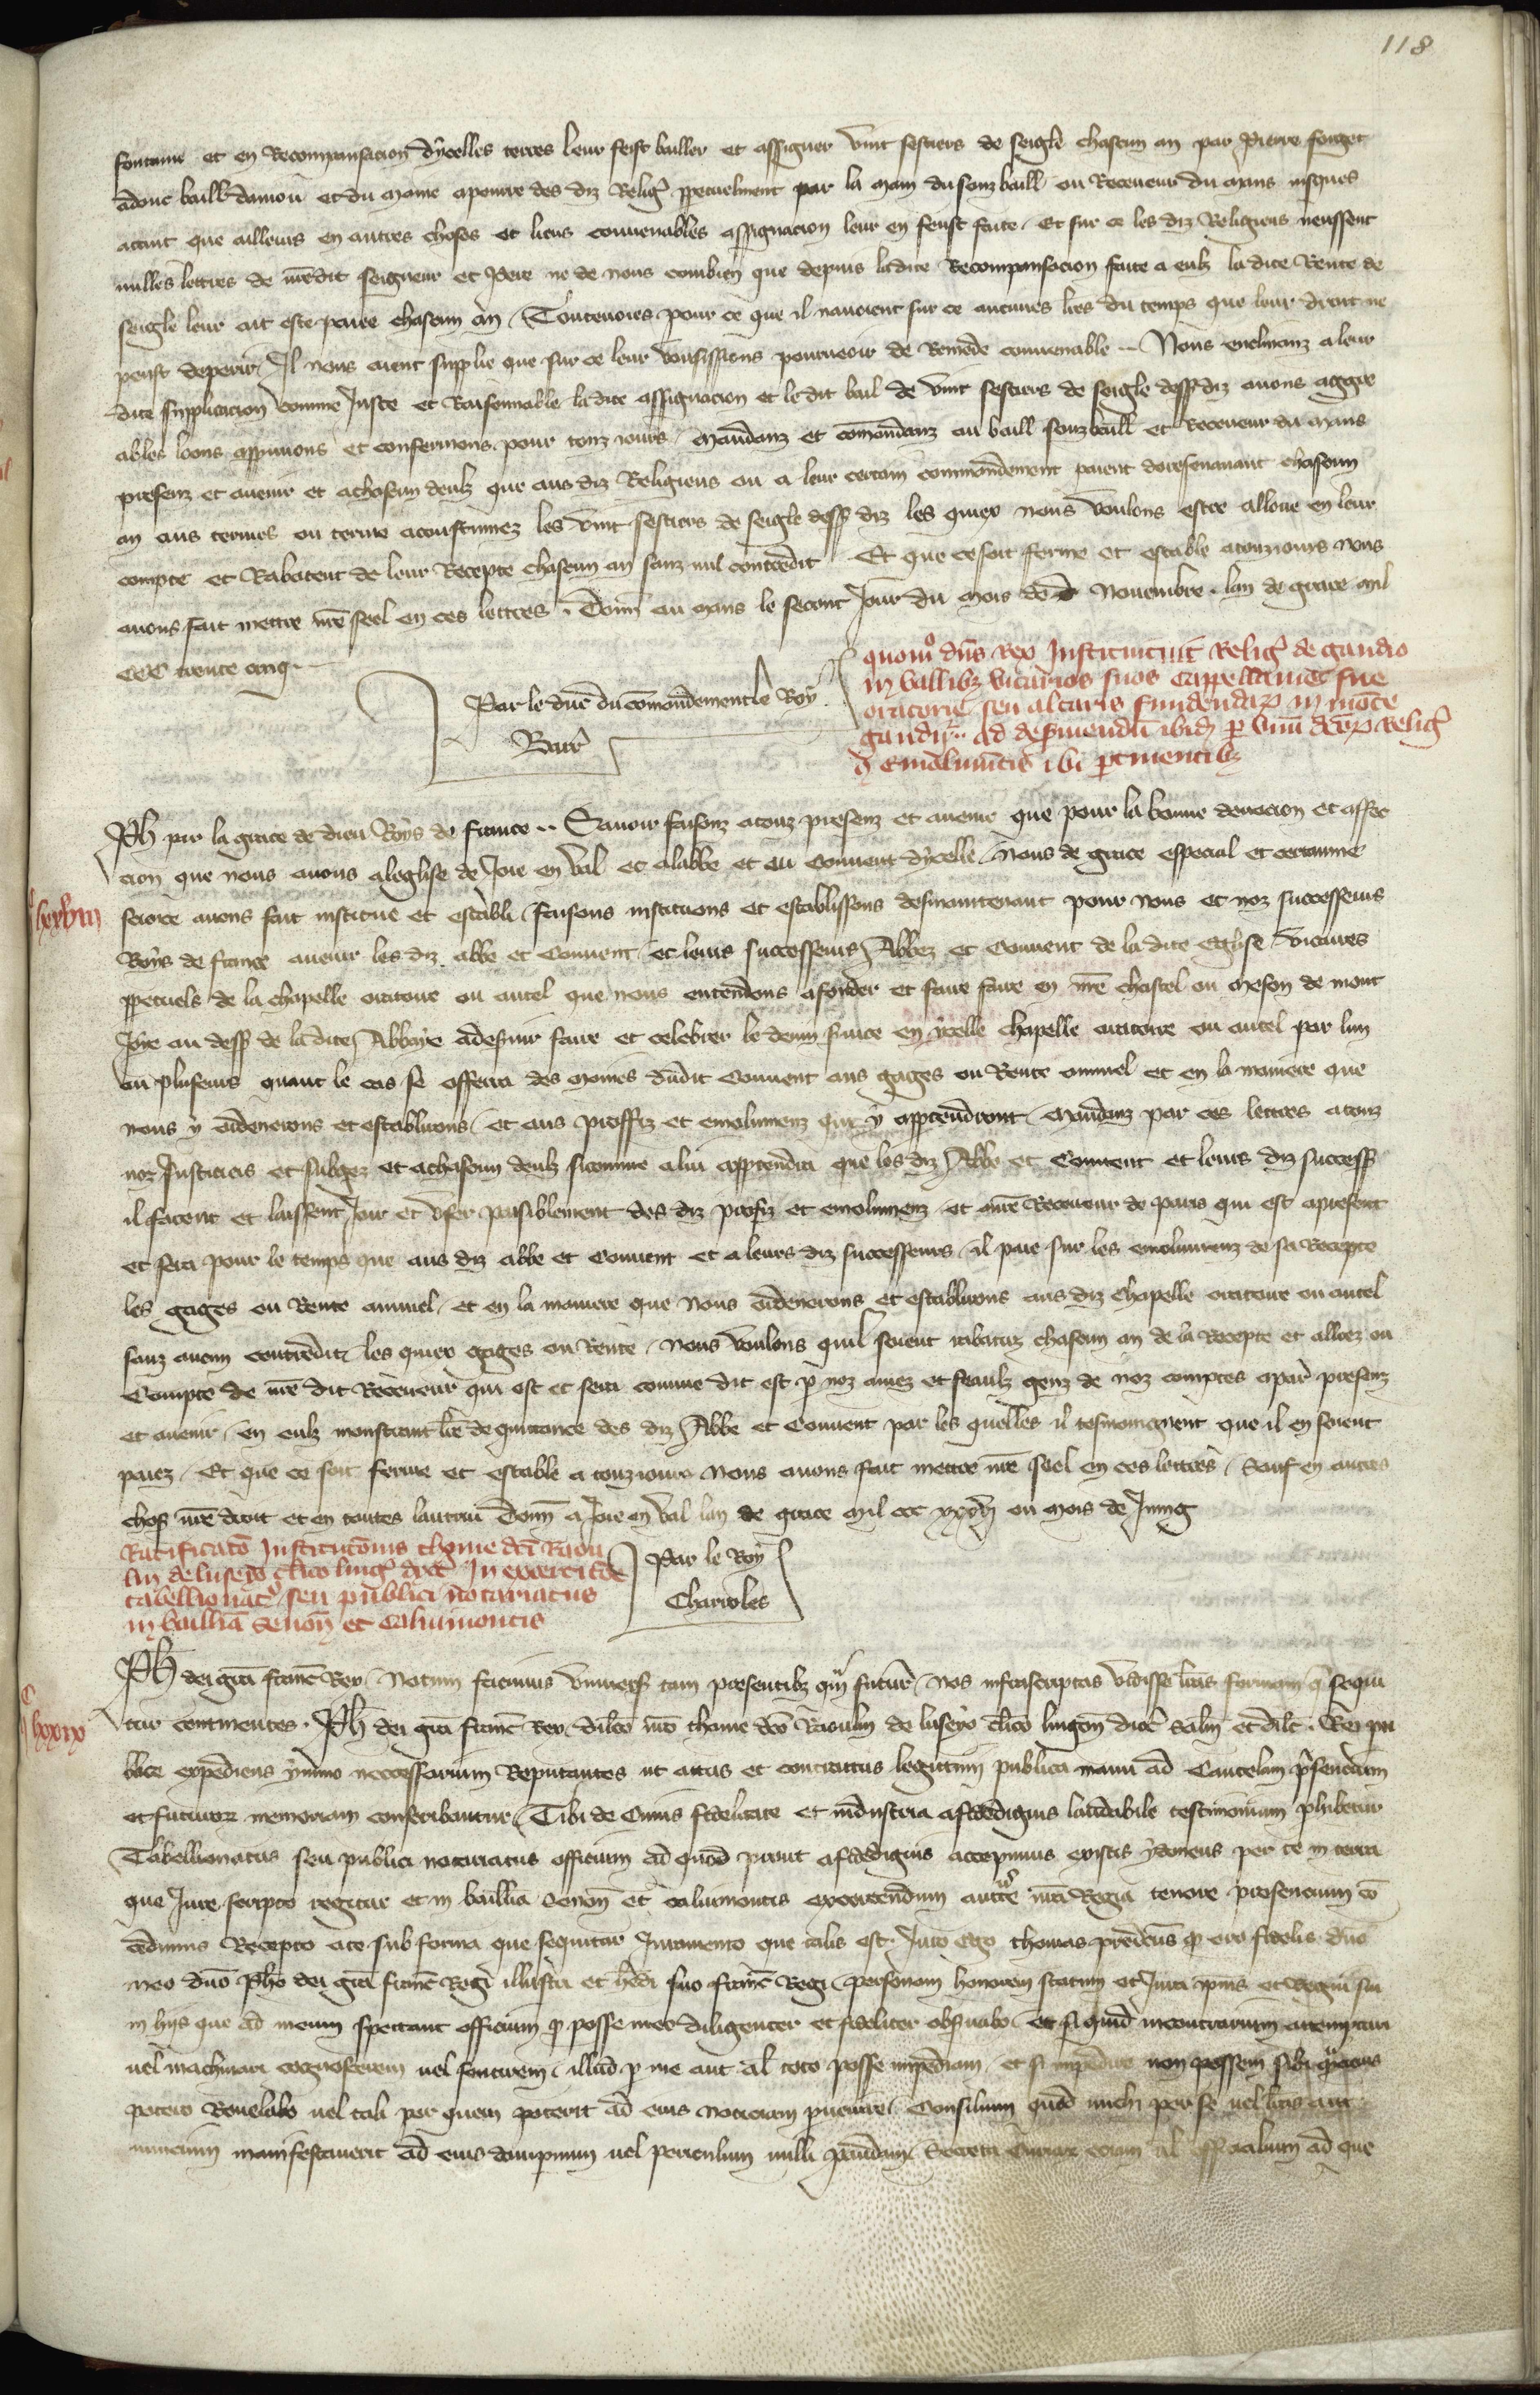 118
fontaine et en Recompansacion dycelles terres leur feist baillier et assigner vint sestiers de seigle chascun an par Pierre forget
adonc baill danjou et du Maine a penre des diz Religˀ ppetuelment par la main du souz baill ou Receveur du Mans jusques
atant que ailleurs en autres choses et lieus convenables assignacion leur en feust faite. Et sur ce les diz Religieus neussent
nulles lettres de nredit seigneur et Pere ne de nous combien que depuis ladite Recompansacion faite a eulz ladite Rente de
seigle leur ait este paiee chascun an. Toutevoies pour ce que il navoient sur ce aucunes lres du temps que leur droit ne
peust deperir. Il nous aient supplie que sur ce leur vousissions pourveoir de Remede convenable. Nous enclinanz a leur
dite supplicacion comme Juste et Raisonnable ladite assignacion et le dit bail de vint sestiers de seigle dess diz avons aggre
ables loons approuvons et confermons pour touz jours. Mandanz et commandanz au baill souzbaill et Receveur du Mans
presenz et avenir et achascun deulz que aus diz Religieus ou a leur certain commandement paient doresenavant chascun
an aus termes ou terme acoustumez les vint sestiers de seigle dess diz les quiex nous voulons estre alloue en leur
compte et Rabatent de leur Recepte chascun an sanz nul contredit. Et que ce soit ferme et estable atouzjours nous
avons fait mettre nre seel en ces lettres. Donn au Mans le secont Jour du mois de Novembre. lan de grace mil
CCC trente cinq.
Par le duc du commandement le Roy
Barr
quomº dns Rex Instituit Religˀ de gaudio
in vallibz vicarios suos Capellanie sue
oratorie seu altaris fundendaꝝ in monte
gaudii. Ad deserviendū ibid p vnū dcoꝝ Religˀ
Emolumētis ibi ptinentibz
lxxviii
Ph par la grace de dieu Roys de france. Savoir faisonz atouz presenz et avenir que pour la bonne devocion et affec
cion que nous avons aleglise de Joie en val et a labbe et au Couvent dycelle. Nous de grace especial et certaine
science avons fait institue et establi faisons instituons et establissons desmaintenant pour nous et noz successeurs
Roys de france avenir les diz abbe et Couvent et leurs successeurs Abbez et Couvent de la dite Eglise vicaires
ppetuels de la chapelle oratoire ou autel que nous entendons afonder et faire faire en nre chastel ou meson de mont
Joie au dess de la dite Abbaye adeservir faire et celebrer le devin service en ycelle chapelle oratoire ou autel par lun
ou pluseurs quant le cas se offerra des moines dudit Couvent aus gages ou Rente annuel et en la maniere que
nous y ordenerons et establirons. et aus proffiz et emolumenz qui y appartendront. Mandanz par ces lettres a touz
noz Justiciers et subgez et achascun deulz sicomme alui appartendra que les diz Abbe et Couvent et leurs diz success
il facent et laissent Joir et vser paisiblement des diz profiz et emolumenz. et nre Receveur de Paris qui est apresent
et sera pour le temps que aus diz abbe et Couvent et a leurs diz successeurs il paie sur les emolumenz de sa Recepte
les gages ou Rente annuel et en la maniere que nous ordenerons et establirons aus diz chapelle oratoire ou autel
sanz aucun contredit. les quiex gages ou Rente nous voulons quil soient rabatuz chascun an de la Recepte et allouez ou
Compte de nre dit Receveur qui est et sera comme dit est p noz amez et feaulz genz de noz comptes apar presenz
et avenir. en eulz monstrant lre de quittance des diz Abbe et Couvent par les quelles il tesmoigneent que il en soient
paiez. Et que ce soit ferme et estable a touzjours nous avons fait mettre nre seel en ces lettres. Sauf en autres
chos nre droit et en toutes lautrui. Donn a Joie en val lan de grace mil CCC xxxvi ou mois de Juing
Par le Roy
Charroles
Ratificatō Institutōnis thome dci Raou
lin de lusero clico lingˀ dyoc In exerci
tabellionatˀ seu publici notariatus
in baillia Senoñ et Calvimontis
lxxix
Ph dei gra franc Rex. Notum facimus vnivers tam presentibz qm futur. Nos infrascriptas vidisse lras formam q sequi
tur continentes. Ph dei gra franc Rex. dilco nro thome dco Raoulin de luseyo clico lingoñ dioc salm et dilc. Rei pu
blice expediens ymmo neccessarium Reputantes ut actus et contractus legitimi publica manu ad Cautelam psencium
et futuroꝝ memoriam conscribantur. Tibi de Cuius fidelitate et industria a fidedignis laudabile testimonium phibetur
Tabellionatus seu publici notariatus officium ad quod prout a fidedignis accepimus existis ydoneus per te in terra
que Jure scripto regitur et in baillia Senoñ et calvimontis exercendum aucte nra Regia tenore presencium co
cedimus Recepto a te sub forma que sequitur Juramento que talis est. Juro Ego thomas predictus q ero fidelis dno
meo dno Pho dei gra franc Regi illustri et hedi suo franc Regi. personam honorem statum et Jura ipius et Regni sui
in hiis que ad meum spectant officium p posse meo diligenter et fideliter obsvabo. Et si quid incontrarium attemptari
uel machinari cognoscerem uel sentirem. illud p me aut al toto posse impediam. et si impedire non possem sibi
potero Revelabo uel tali per quem poterit ad eius noticiam pvenire. Consilium quod michi per se uel lras aut
nuncium manifestaverit ad eius dampnum uel periculum nulli pandam. Secreta Curiaꝝ eciam al officialium ad que